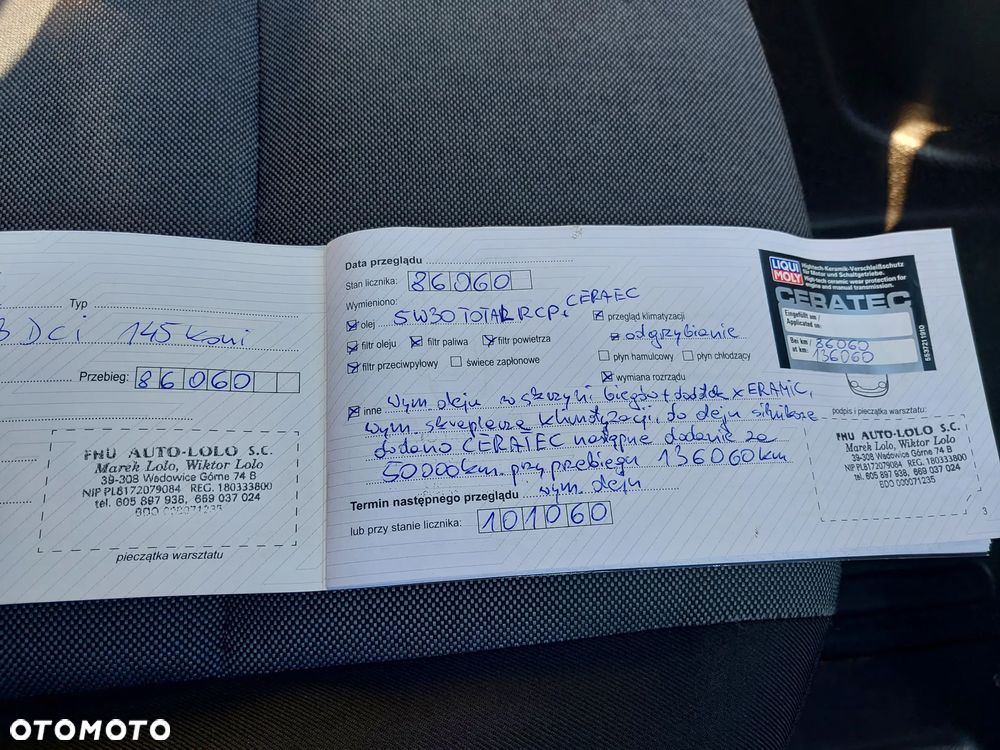 Typ
DCi 145 koni
Przebieg: 86060
FHU AUTO-LOLO S.C.
Marek Lolo, Wiktor Lolo
39-308 Wadowice Górne 74 B
NIP PL8172079084 REG. 180333800
tel. 605 897 938, 669 037 024
BDO 000071235
pieczątka warsztatu
Data przeglądu
Stan licznika: 86060
Wymieniono:
olej 5W30 TOTAL RCP + CERATEC
filtr oleju filtr paliwa filtr powietrza
filtr przeciwpyłowy świece zapłonowe
przegląd klimatyzacji
odgrzybianie
płyn hamulcowy płyn chłodzący
wymiana rozrządu
inne wym. oleju w skrzyni biegów + dodatek XERAMIC,
wym. skraplacza klimatyzacji, do oleju silnika
dodano CERATEC następne dodanie za
50000km przy przebiegu 136060km
Termin następnego przeglądu wym. oleju
lub przy stanie licznika: 101060
LIQUI MOLY
Hightech-Keramik-Verschleißschutz
für Motor und Schaltgetriebe.
High-tech ceramic wear protection for
engine and manual transmission.
CERATEC
Eingefüllt am /
Applicated on:
Bei km / 86060
at km: 136060
podpis i pieczątka warsztatu:
FHU AUTO-LOLO S.C.
Marek Lolo, Wiktor Lolo
39-308 Wadowice Górne 74 B
NIP PL8172079084 REG. 180333800
tel. 605 897 938, 669 037 024
BDO 000071235
3
OTOMOTO